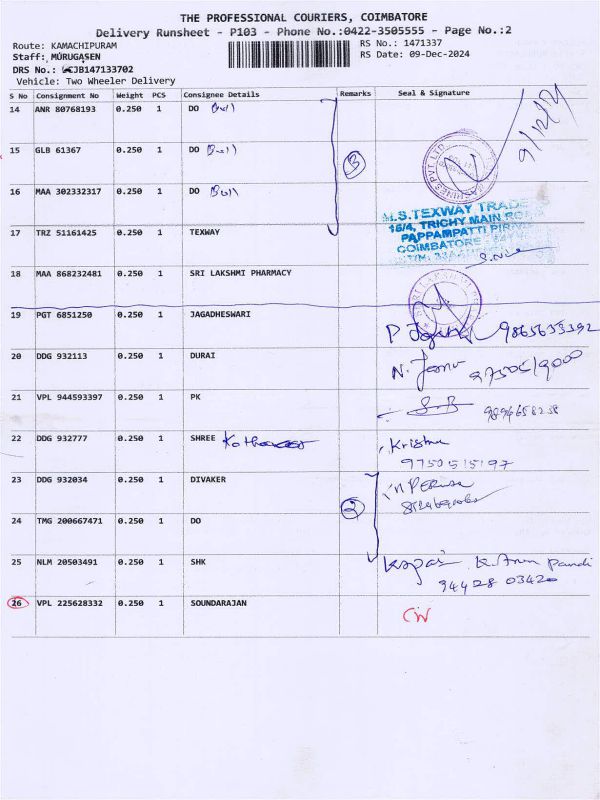 THE PROFESSIONAL COURIERS, COIMBATORE
Delivery Runsheet - P103 - Phone No.:0422-3505555 - Page No.:2
Route: KAMACHIPURAM RS No.: 1471337
Staff: MURUGASEN RS Date: 09-Dec-2024
DRS No.: CJB147133702
Vehicle: Two Wheeler Delivery
S No Consignment No Weight PCS Consignee Details Remarks Seal & Signature
14 ANR 80768193 0.250 1 DO Bell 9/12/24
15 GLB 61367 0.250 1 DO Bell 3
16 MAA 302332317 0.250 1 DO Bell
M.S.TEXWAY TRADE
16/4, TRICHY MAIN ROAD
17 TRZ 51161425 0.250 1 TEXWAY PAPPAMPATTI PIRIVU
COIMBATORE
18 MAA 868232481 0.250 1 SRI LAKSHMI PHARMACY
19 PGT 6851250 0.250 1 JAGADHESWARI
P 9865633392
20 DDG 932113 0.250 1 DURAI N.
21 VPL 944593397 0.250 1 PK S.B
22 DDG 932777 0.250 1 SHREE Krishna
9750515197
23 DDG 932034 0.250 1 DIVAKER
2
24 TMG 200667471 0.250 1 DO
25 NLM 20503491 0.250 1 SHK K. Arun Pandi
94428 03420
26 VPL 225628332 0.250 1 SOUNDARAJAN CW